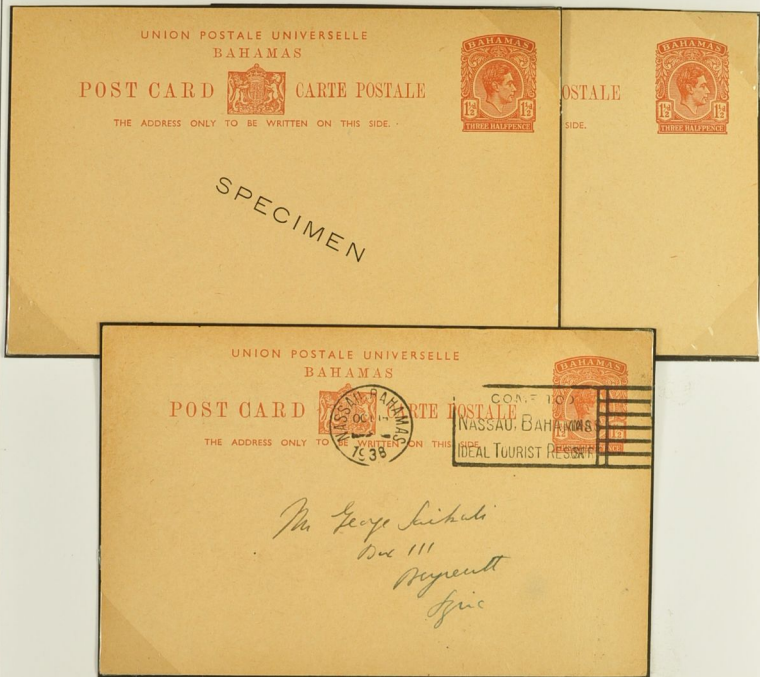 UNION POSTALE UNIVERSELLE
BAHAMAS
POST CARD CARTE POSTALE
THE ADDRESS ONLY TO BE WRITTEN ON THIS SIDE.
BAHAMAS
1½d 1½d
THREE HALFPENCE
SPECIMEN
OSTALE
SIDE.
BAHAMAS
1½d 1½d
THREE HALFPENCE
UNION POSTALE UNIVERSELLE
BAHAMAS
POST CARD CARTE POSTALE
THE ADDRESS ONLY TO BE WRITTEN ON THIS SIDE.
BAHAMAS
NASSAU BAHAMAS
1938
COME TO
NASSAU, BAHAMAS
IDEAL TOURIST RESORT
Mr George Saikali
Box 111
Beyrouth
Syria